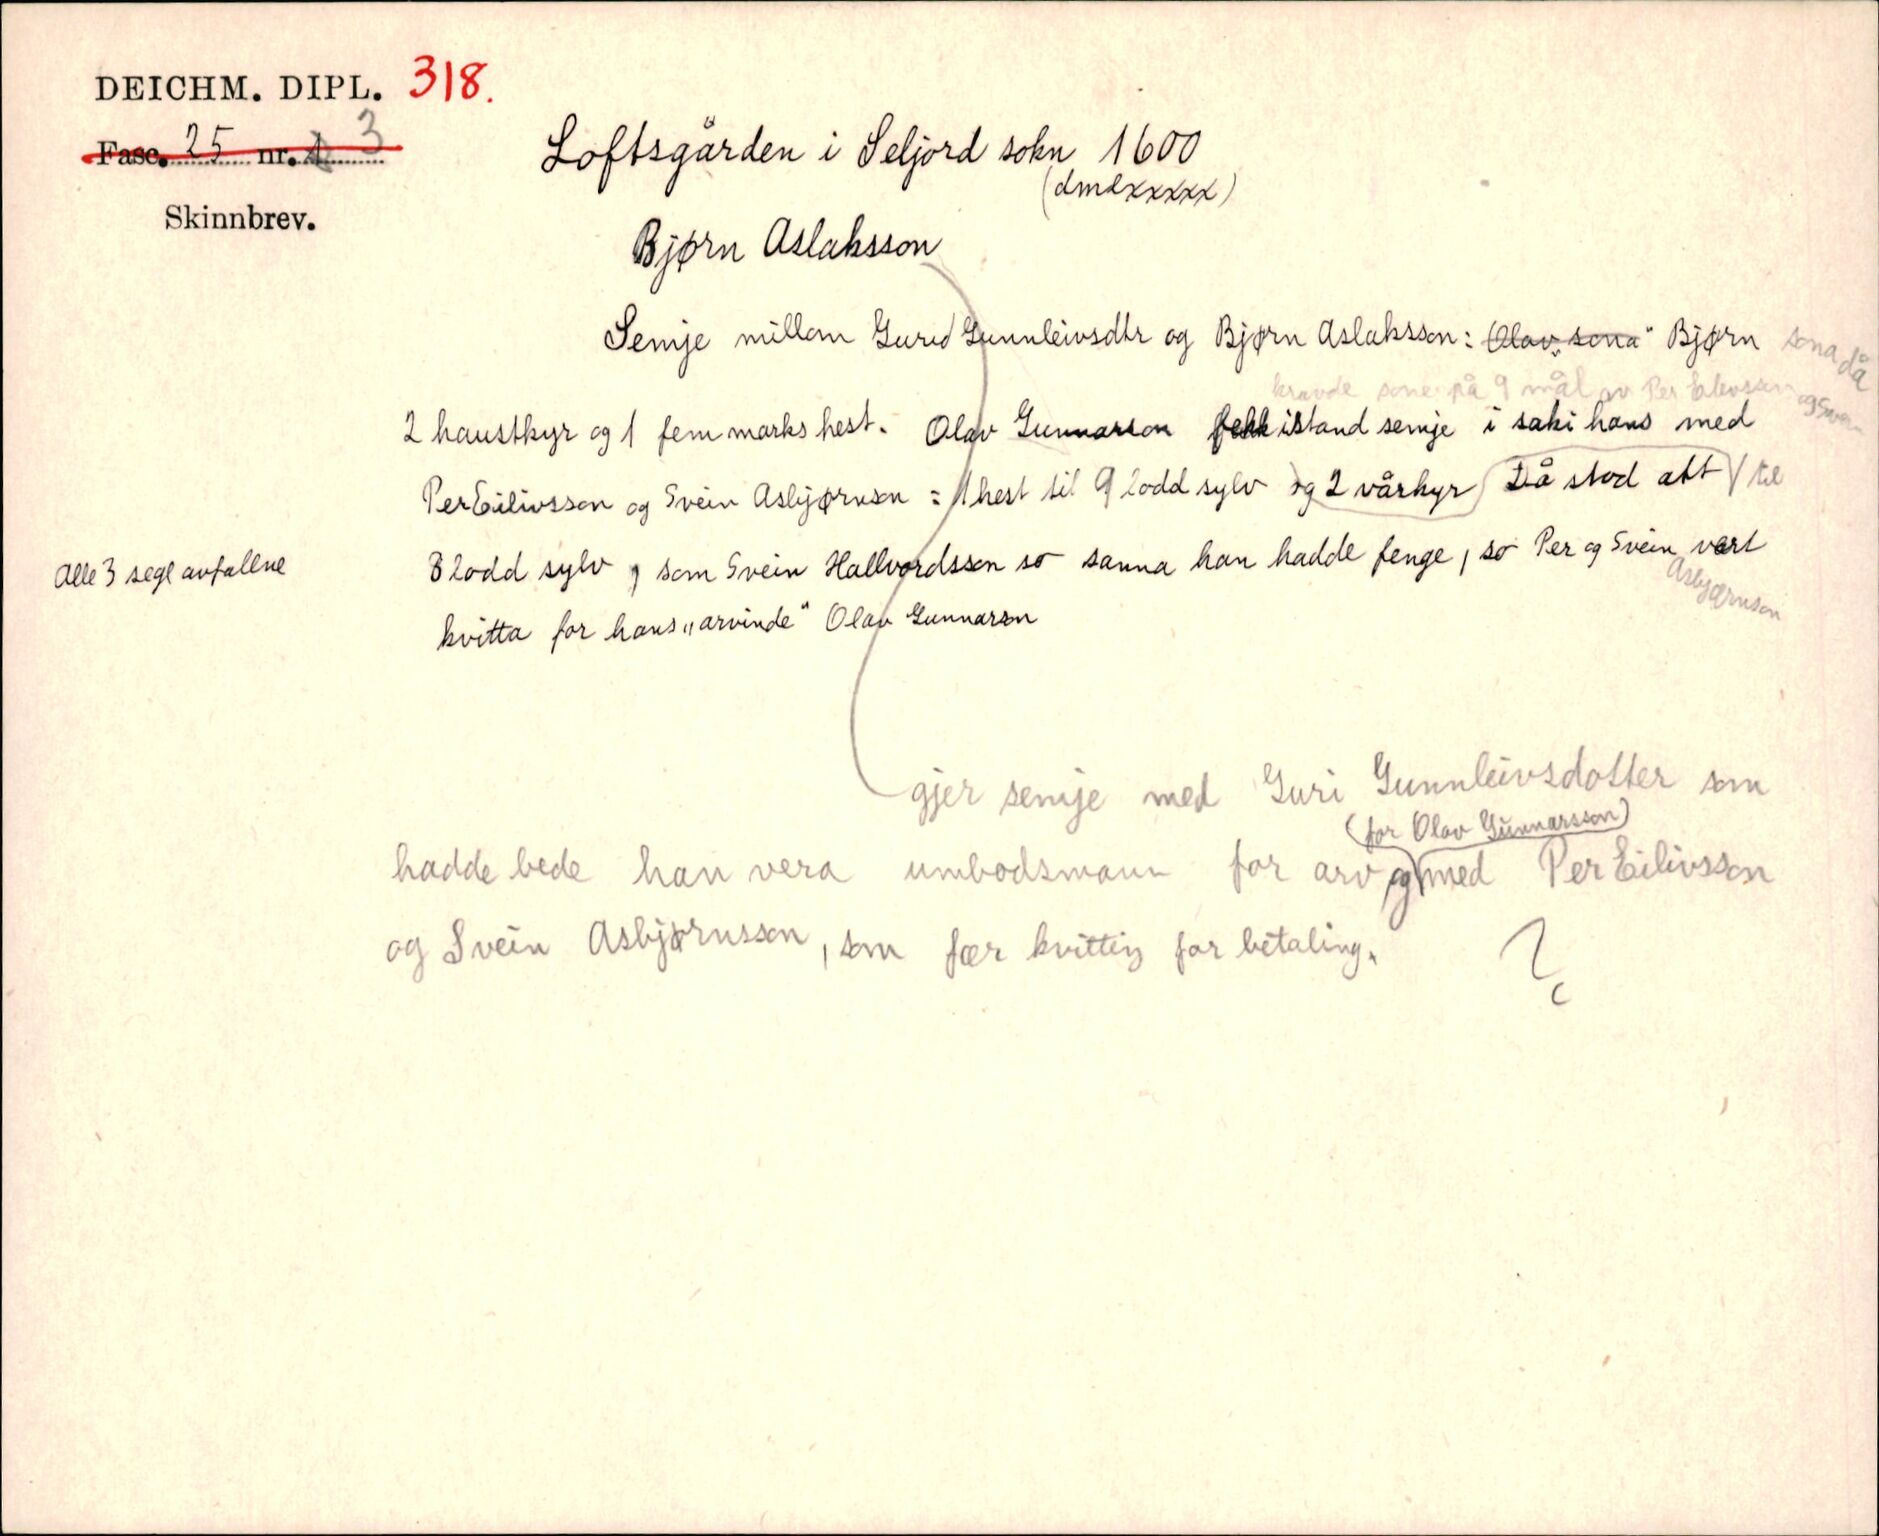 DEICHM. DIPL. 318.
Fasc. 25 nr. 1 3
Skinnbrev.
Loftsgården i Seljord sokn 1600
(dmdxxxxx)
Bjørn Aslaksson
Semje millom Gurid Gunnleivsdtr og Bjørn Aslaksson: Olav „sona“ Bjørn sona då
kravde sone på 9 mål av Per Eilivsson og Svein
2 haustkyr og 1 fem marks hest. Olav Gunnarson fekk istand semje i saki hans med
Per Eilivsson og Svein Asbjørnson = 1 hest til 9 lodd sylv og 2 vårkyr Då stod att / til
Alle 3 segl avfallne
8 lodd sylv, som Svein Hallvordsson so sanna han hadde fenge, so Per og Svein vart
Asbjørnson
kvitta for hans „arvinde“ Olav Gunnarson
gjer semje med Guri Gunnleivsdotter som
(for Olav Gunnarsson)
hadde bede han vera umbodsmann for arv og med Per Eilivsson
og Svein Asbjørnsson, som fær kvittig for betaling. ?